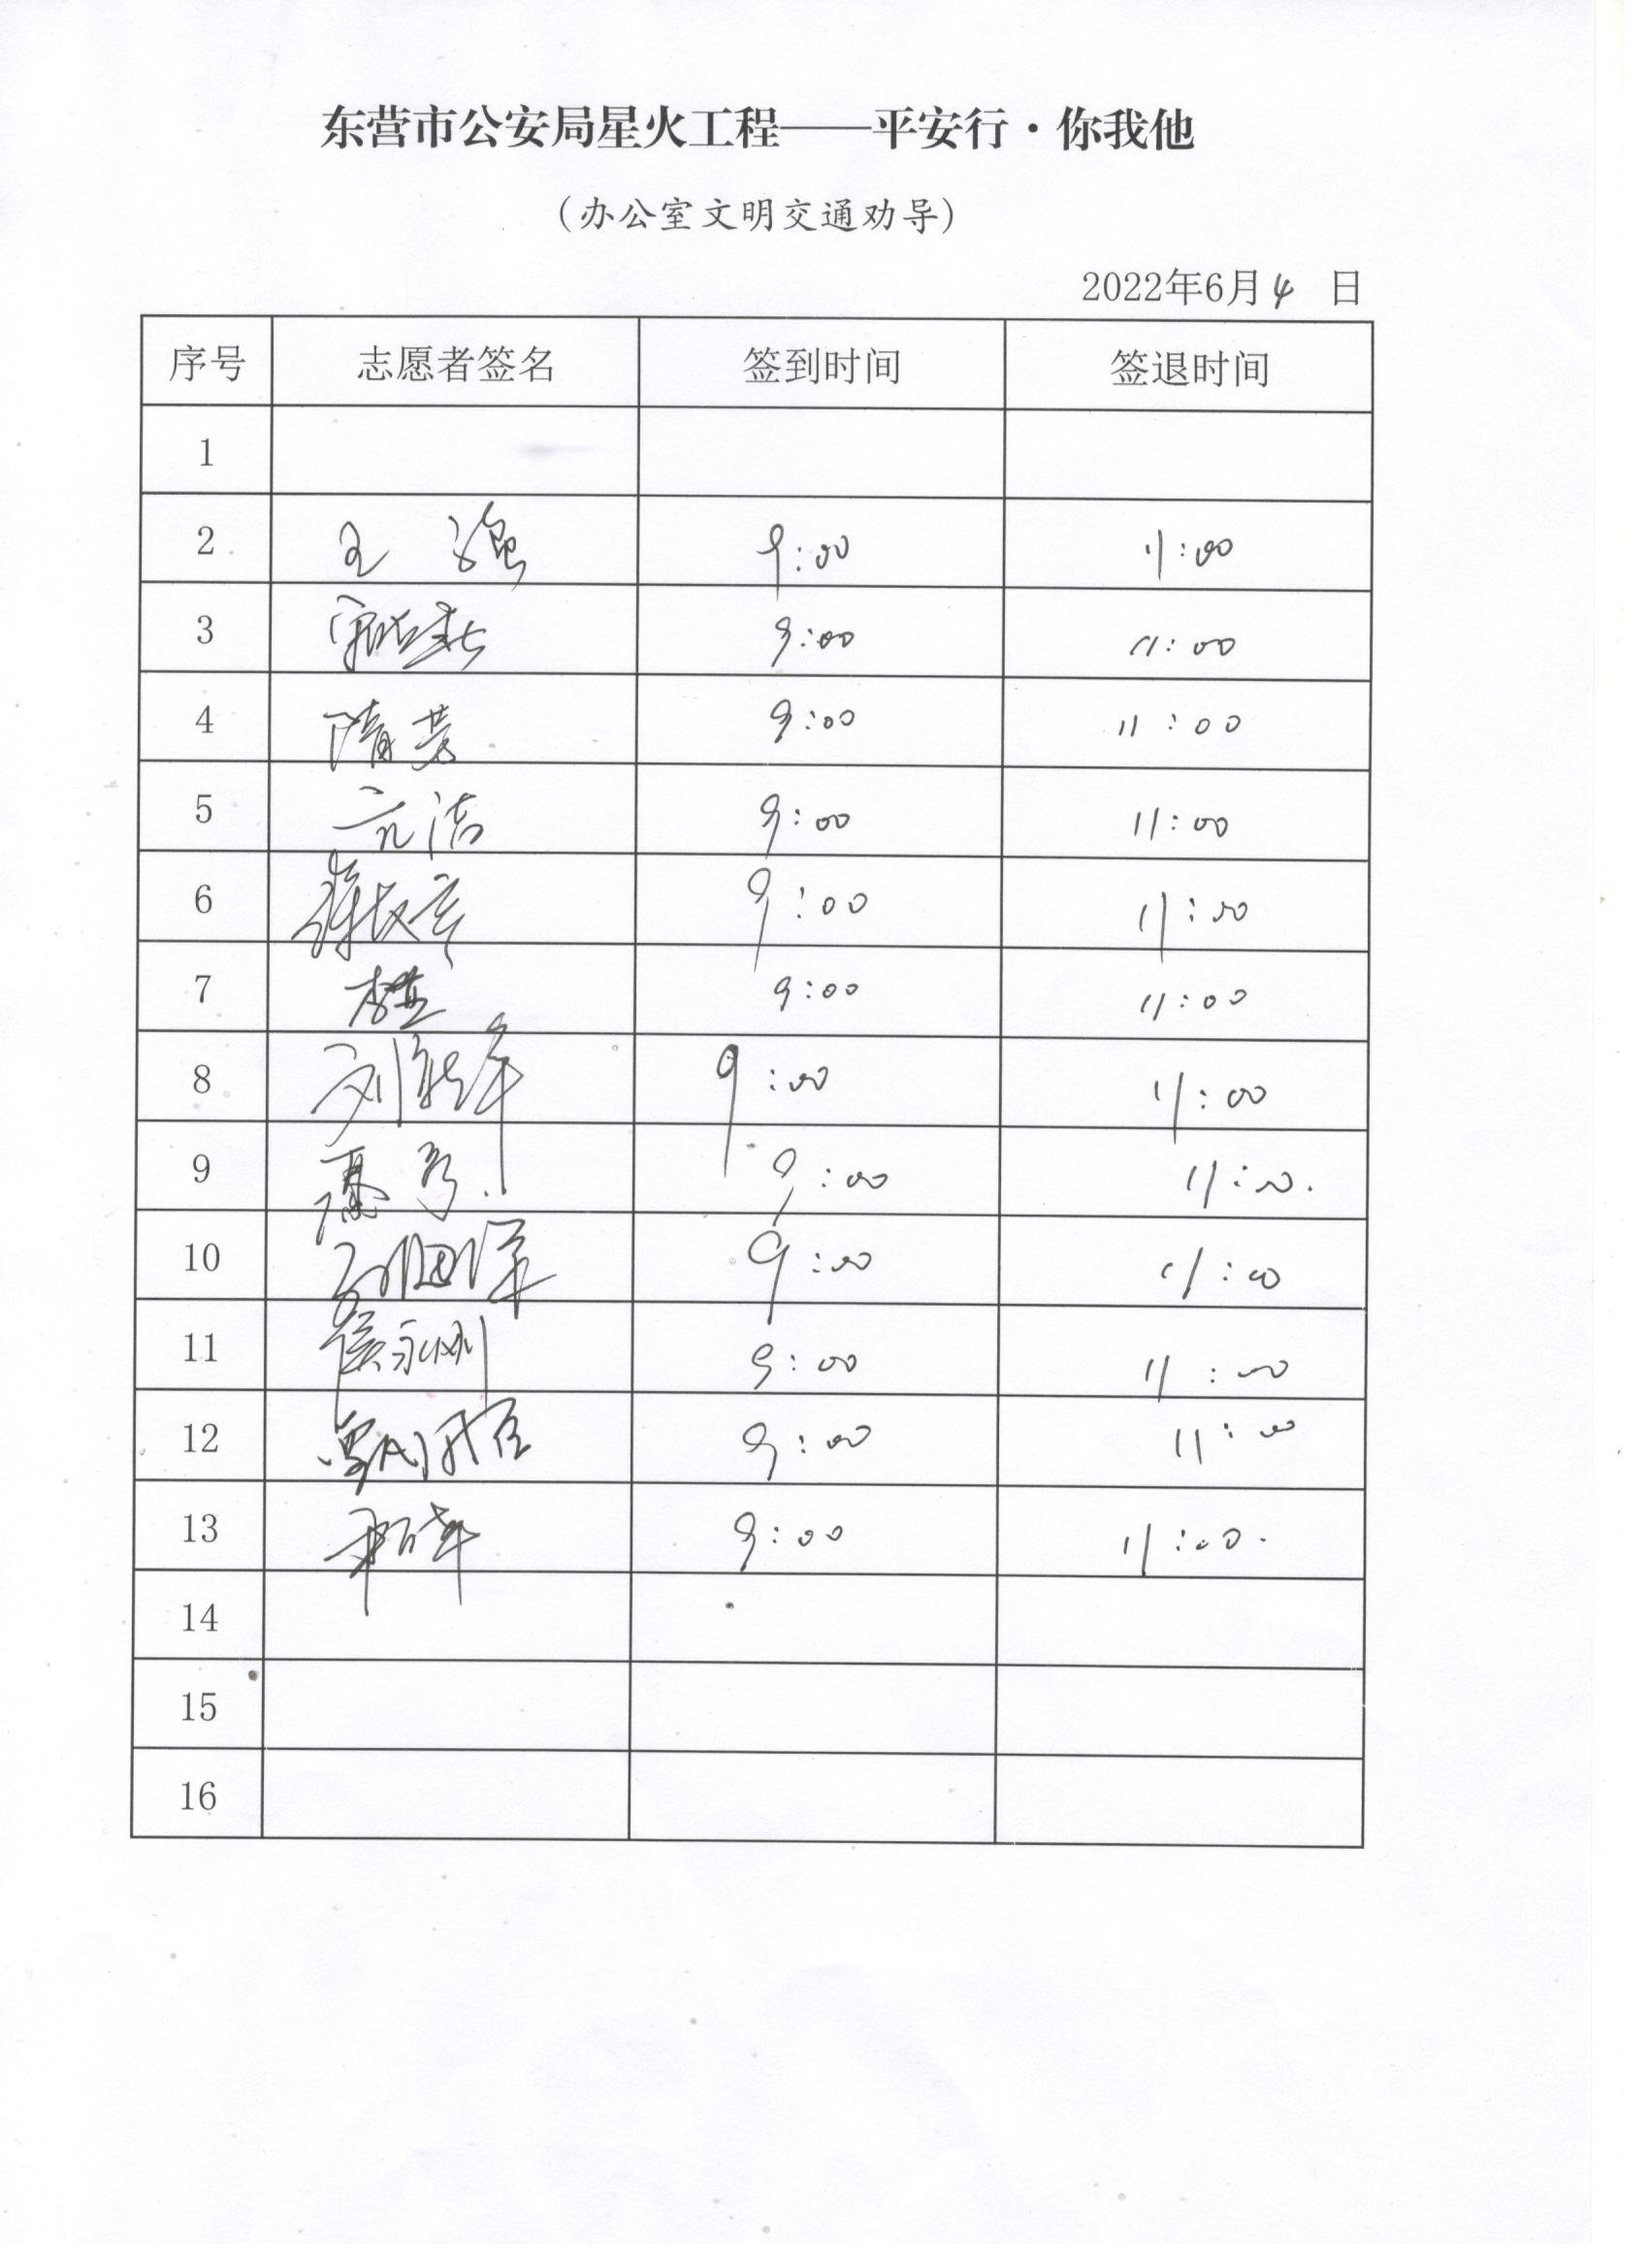 东营市公安局星火工程——平安行·你我他
(办公室文明交通劝导)
2022年6月4日
序号 志愿者签名 签到时间 签退时间
1
2 王强 9:00 11:00
3 9:00 11:00
4 隋芳 9:00 11:00
5 亓洁 9:00 11:00
6 9:00 11:00
7 9:00 11:00
8 9:00 11:00
9 9:00 11:00.
10 9:00 11:00
11 侯永刚 9:00 11:00
12 9:00 11:00
13 9:00 11:00.
14
15
16